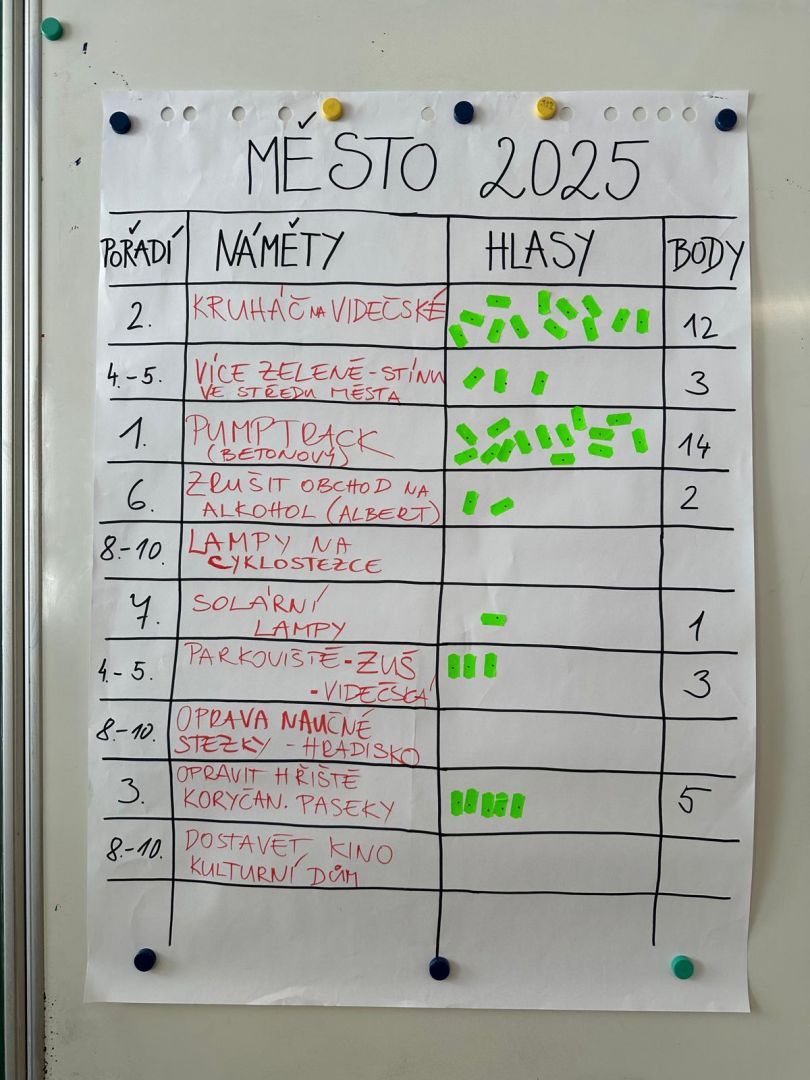 MĚSTO 2025
POŘADÍ NÁMĚTY HLASY BODY
2. KRUHÁČ NA VIDEČSKÉ 12
4.-5. VÍCE ZELENĚ-STÍNU 3
VE STŘEDU MĚSTA
1. PUMPTRACK 14
(BETONOVÝ)
6. ZRUŠIT OBCHOD NA 2
ALKOHOL (ALBERT)
8.-10. LAMPY NA
CYKLOSTEZCE
7. SOLÁRNÍ 1
LAMPY
4.-5. PARKOVIŠTĚ-ZUŠ 3
-VIDEČSKÁ
8.-10. OPRAVA NAUČNÉ
STEZKY - HRADISKO
3. OPRAVIT HŘIŠTĚ 5
KORYČAN. PASEKY
8.-10. DOSTAVĚT KINO
KULTURNÍ DŮM